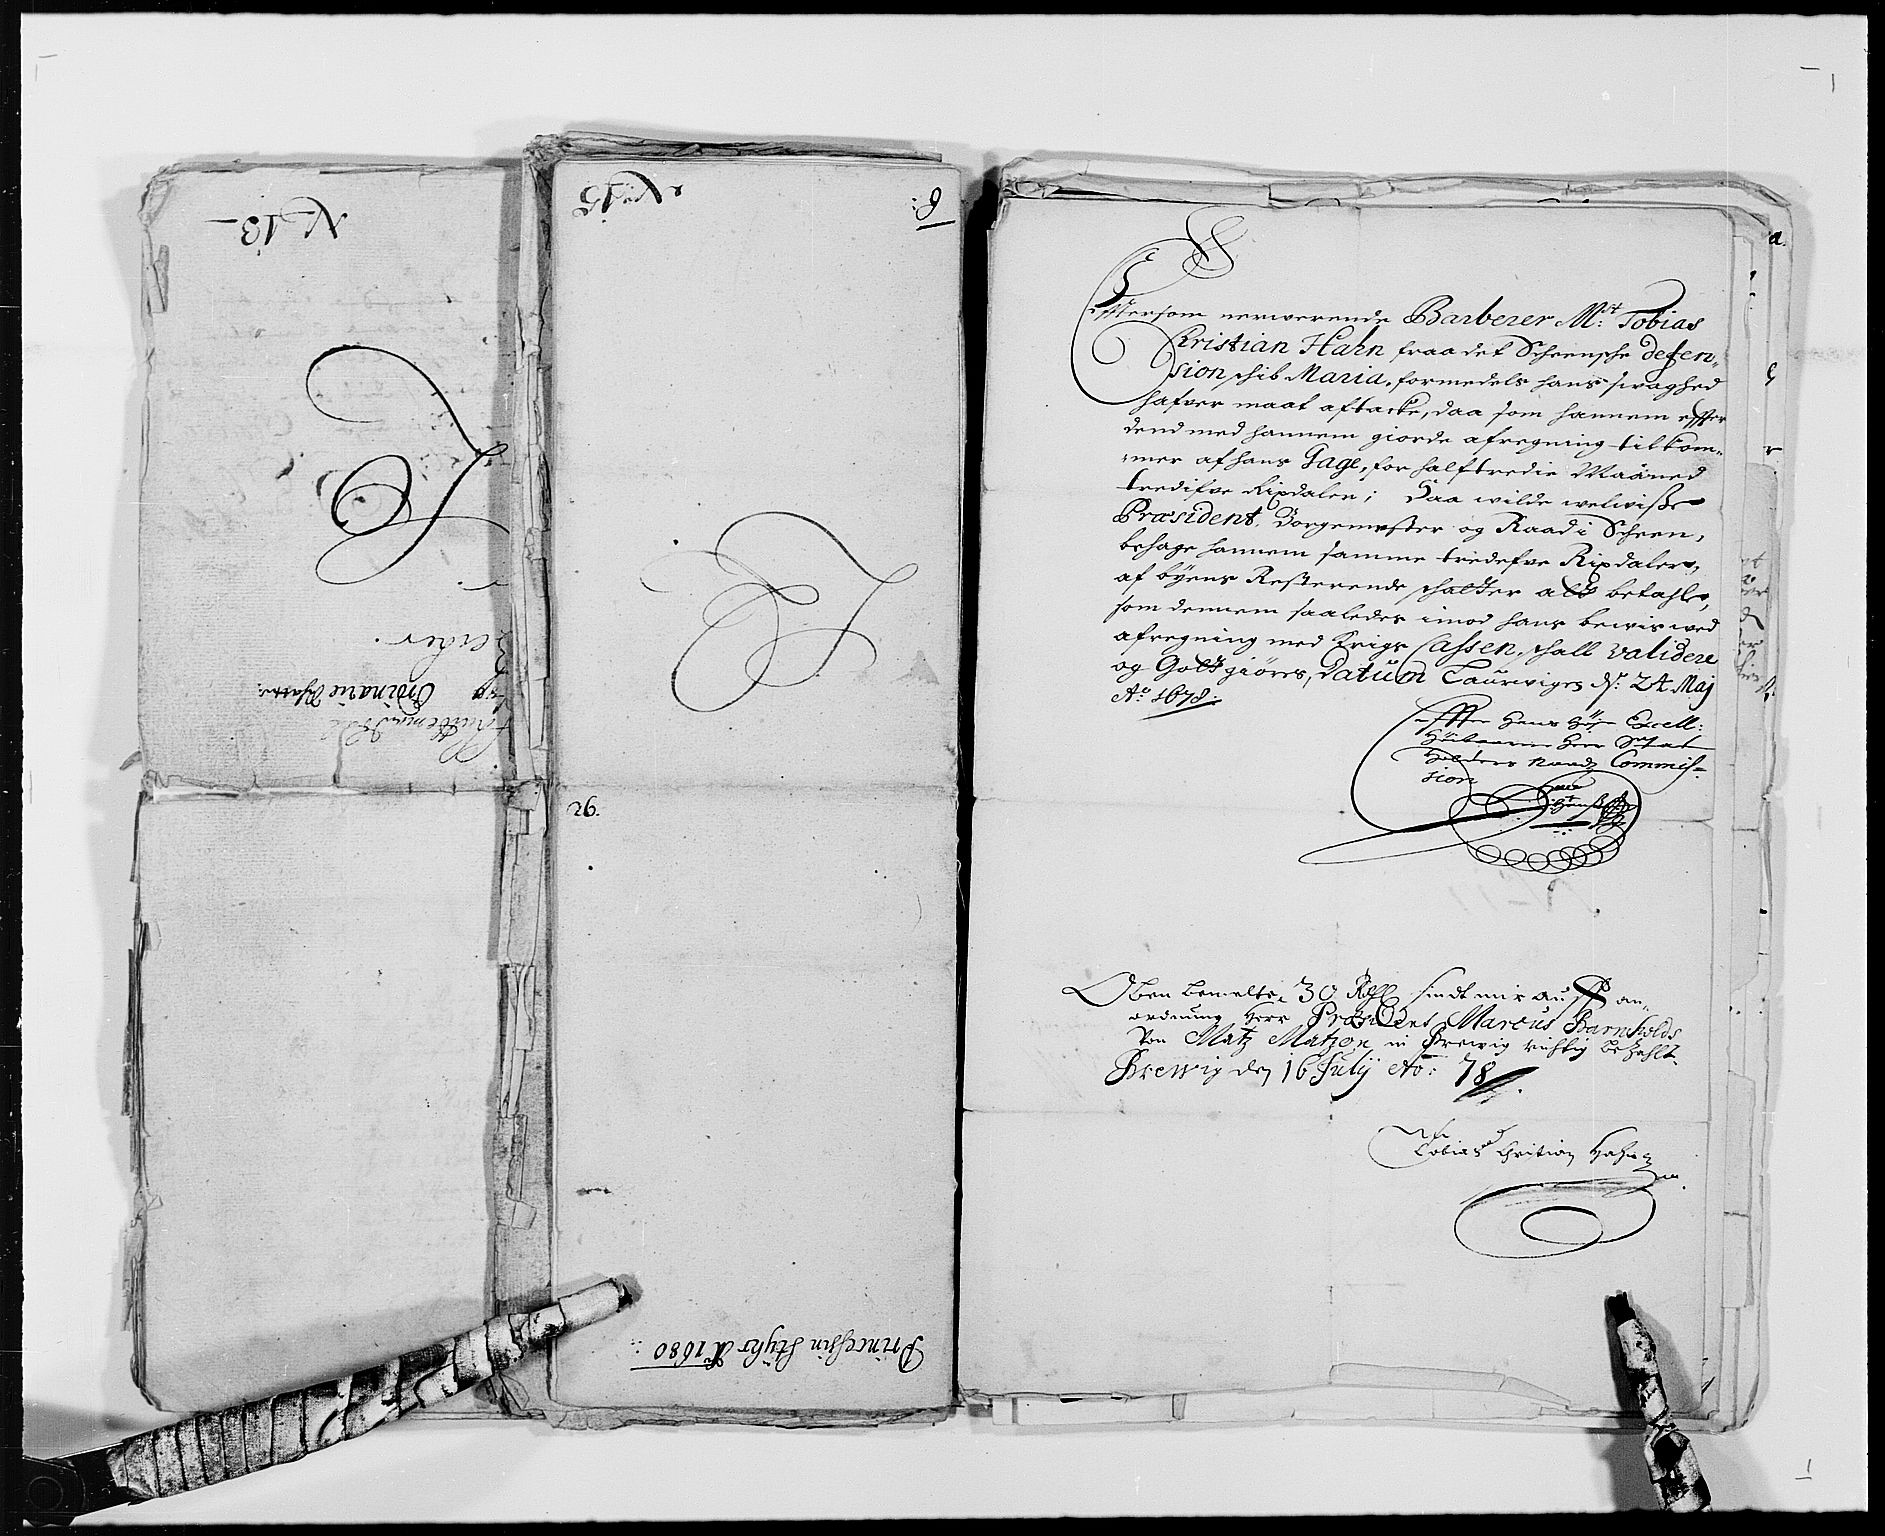 N 13
Ordinarie
No 15
26.
Princessin Styhr Ao 1680
Eftersom nerwerende Barberer Mst: Tobias
Kristian Hahn fraa det Scheensche defen-
sion schib Maria, formedels hans swaghed
hafver maat aftacke, daa som hannem effter
dend med hannem giorde afregning tilkom-
mer af hans Gage, for halftredie Maaned
tredifve Rixdaler; Daa wilde welwiße
Præsident, Borgemester og Raad i Scheen,
behage hannem samme tredefve Rixdaler,
af byens Resterende schatter alt betahle,
som dennem saaledes imod hans bewis wed
afregning med Krigs Cassen, schall validere
og Gott giöres, Datum Laurwigen ds: 24 Maj
Ao 1678:
Effter Hans Höye Excell:
Höibaarne Herr Stat
Holders Naadz Commis-
sion
Oben bemelte 30 Rdl sindt mir auff an-
ordnung Herr Præsident Marcus Barnholds
von Matz Matzon in Brewig richtig bezahlt
Brewig den 16 Julij Ao: 78
Tobias Christian Hahn